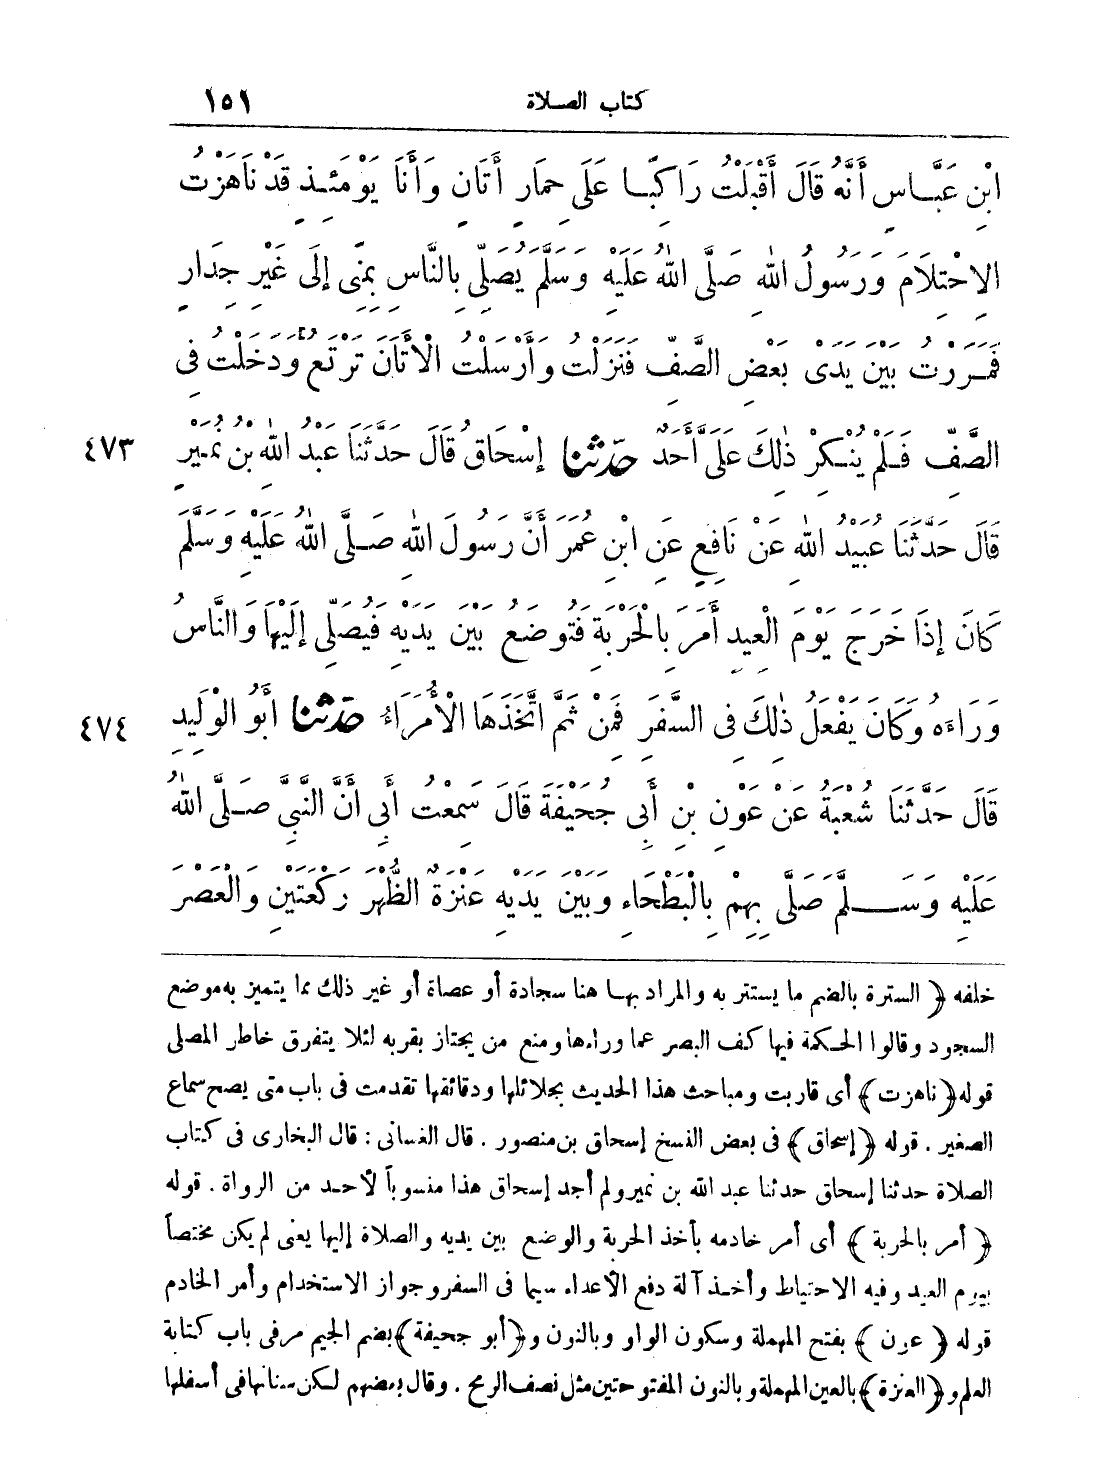 كتاب الصلاة ١٥١
ابْنِ عَبَّاسٍ أَنَّهُ قَالَ أَقْبَلْتُ رَاكِبًا عَلَى حِمَارٍ أَتَانٍ وَأَنَا يَوْمَئِذٍ قَدْ نَاهَزْتُ
الِاحْتِلَامَ وَرَسُولُ اللهِ صَلَّى اللهُ عَلَيْهِ وَسَلَّمَ يُصَلِّي بِالنَّاسِ بِمِنًى إِلَى غَيْرِ جِدَارٍ
فَمَرَرْتُ بَيْنَ يَدَىْ بَعْضِ الصَّفِّ فَنَزَلْتُ وَأَرْسَلْتُ الْأَتَانَ تَرْتَعُ وَدَخَلْتُ فِى
الصَّفِّ فَلَمْ يُنْكِرْ ذٰلِكَ عَلَىَّ أَحَدٌ حَدَّثَنَا إِسْحَاقُ قَالَ حَدَّثَنَا عَبْدُ اللهِ بْنُ نُمَيْرٍ ٤٧٣
قَالَ حَدَّثَنَا عُبَيْدُ اللهِ عَنْ نَافِعٍ عَنِ ابْنِ عُمَرَ أَنَّ رَسُولَ اللهِ صَلَّى اللهُ عَلَيْهِ وَسَلَّمَ
كَانَ إِذَا خَرَجَ يَوْمَ الْعِيدِ أَمَرَ بِالْحَرْبَةِ فَتُوضَعُ بَيْنَ يَدَيْهِ فَيُصَلِّى إِلَيْهَا وَالنَّاسُ
وَرَاءَهُ وَكَانَ يَفْعَلُ ذٰلِكَ فِى السَّفَرِ فَمِنْ ثَمَّ اتَّخَذَهَا الْأُمَرَاءُ حَدَّثَنَا أَبُو الْوَلِيدِ ٤٧٤
قَالَ حَدَّثَنَا شُعْبَةُ عَنْ عَوْنِ بْنِ أَبِى جُحَيْفَةَ قَالَ سَمِعْتُ أَبِى أَنَّ النَّبِىَّ صَلَّى اللهُ
عَلَيْهِ وَسَلَّمَ صَلَّى بِهِمْ بِالْبَطْحَاءِ وَبَيْنَ يَدَيْهِ عَنَزَةٌ الظُّهْرَ رَكْعَتَيْنِ وَالْعَصْرَ
خلفه ﴾ السترة بالضم ما يستتر به والمراد بها هنا سجادة أو عصاة أو غير ذلك مما يتميز به موضع
السجود وقالوا الحكمة فيها كف البصر عما وراءها ومنع من يجتاز بقربه لئلا يتفرق خاطر المصلى
قوله ﴿ ناهزت ﴾ أى قاربت ومباحث هذا الحديث بجلائلها ودقائقها تقدمت فى باب متى يصح سماع
الصغير . قوله ﴿ إسحاق ﴾ فى بعض النسخ إسحاق بن منصور . قال الغسانى : قال البخارى فى كتاب
الصلاة حدثنا إسحاق حدثنا عبد الله بن نمير ولم أجد إسحاق هذا منسوباً لأحد من الرواة . قوله
﴿ أمر بالحربة ﴾ أى أمر خادمه بأخذ الحربة والوضع بين يديه والصلاة إليها يعنى لم يكن مختصاً
بيوم العيد وفيه الاحتياط وأخذ آلة دفع الأعداء سيما فى السفر وجواز الاستخدام وأمر الخادم
قوله ﴿ عون ﴾ بفتح المهملة وسكون الواو وبالنون و﴿ أبو جحيفة ﴾ بضم الجيم مر فى باب كتابة
العلم و﴿ العنزة ﴾ بالعين المهملة وبالنون المفتوحتين مثل نصف الرمح . وقال بعضهم لكن سنانها فى أسفلها